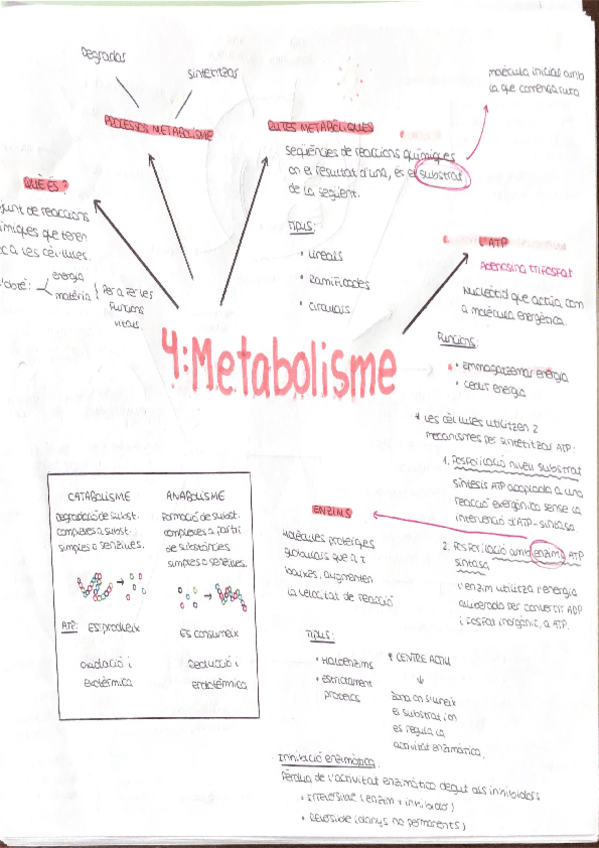 Degradar
Sintetitzar
PROCESSOS METABOLISME
RUTES METABÒLIQUES
Molècula inicial amb
la que comença ruta
seqüències de reaccions químiques
on el resultat d'una, és el substrat
de la següent.
TIPUS:
• Lineals
• Ramificades
• Circulars
QUÈ ÉS?
junt de reaccions
ímiques que tenen
c a les cèl·lules.
energia
matèria
Per a fer les
funcions
vitals.
L'ATP
Adenosina trifosfat
Nucleòtid que actúa com
a molècula energètica.
Funcions:
• emmagatzemar energia
• cedir energia
4: Metabolisme
* Les cèl·lules utilitzen 2
mecanismes per sintetitzar ATP:
1. Fosforilació nivell substrat
síntesis ATP acoplada a una
reacció exergònica sense la
intervenció d'ATP-sintasa
2. Fosforilació amb enzim ATP
sintasa
L'enzim utilitza l'energia
alliberada per convertir ADP
i fosfat inorgànic, a ATP.
CATABOLISME
Degradació de subst.
complexes a subst.
simples o senzilles.
ATP: Es produeix
Oxidació i
exotèrmica
ANABOLISME
Formació de subst.
complexes a partir
de substàncies
simples o senzilles.
Es consumeix
Reducció i
endotèrmica
ENZIMS
Molècules proteiques
globulars que a T
baixes, augmenten
la velocitat de reacció
TIPUS:
• Holoenzims
• Estrictament
proteics
* CENTRE ACTIU
Zona on s'uneix
el substrat i on
es regula la
activitat enzimàtica.
Inhibició enzimàtica:
Pèrdua de l'activitat enzimàtica degut als inhibidors
• Irreversible (enzim + inhibidor)
• Reversible (danys no permanents)